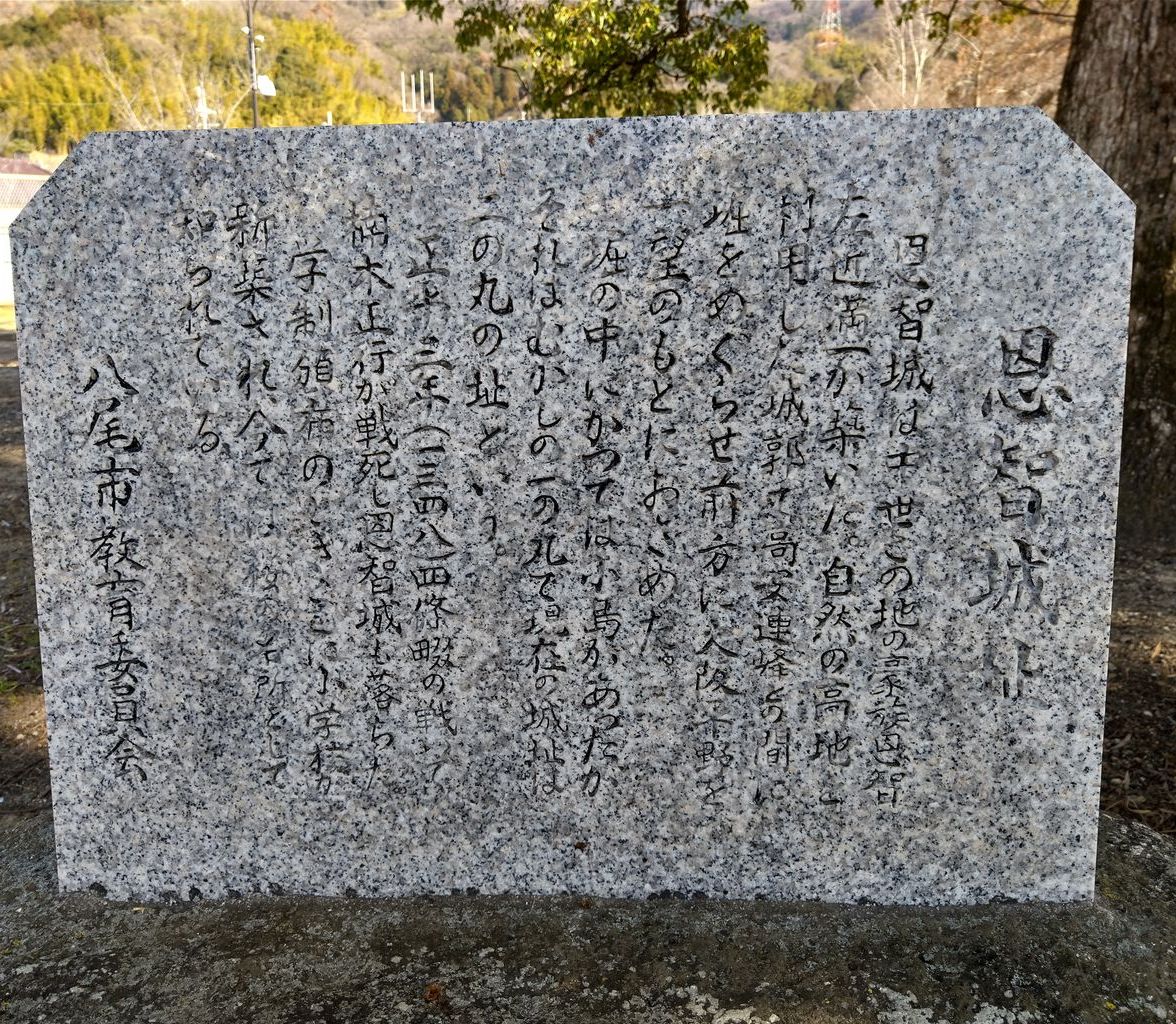 恩智城址
恩智城は士世この地の豪族恩智
左近満一が築いた。自然の高地を
利用した城郭で高安連峰との間に
堀をめぐらせ前方に大阪平野を
一望のもとにおさめた。
堀の中にかつては小島があったが
それはむかしの一の丸で現在の城址は
二の丸の址という。
正平三年(一三四八)四條畷の戦いで
楠木正行が戦死し恩智城も落ちた。
学制頒布のときここに小学校が
新築され今では桜の名所として
知られている
八尾市教育委員会